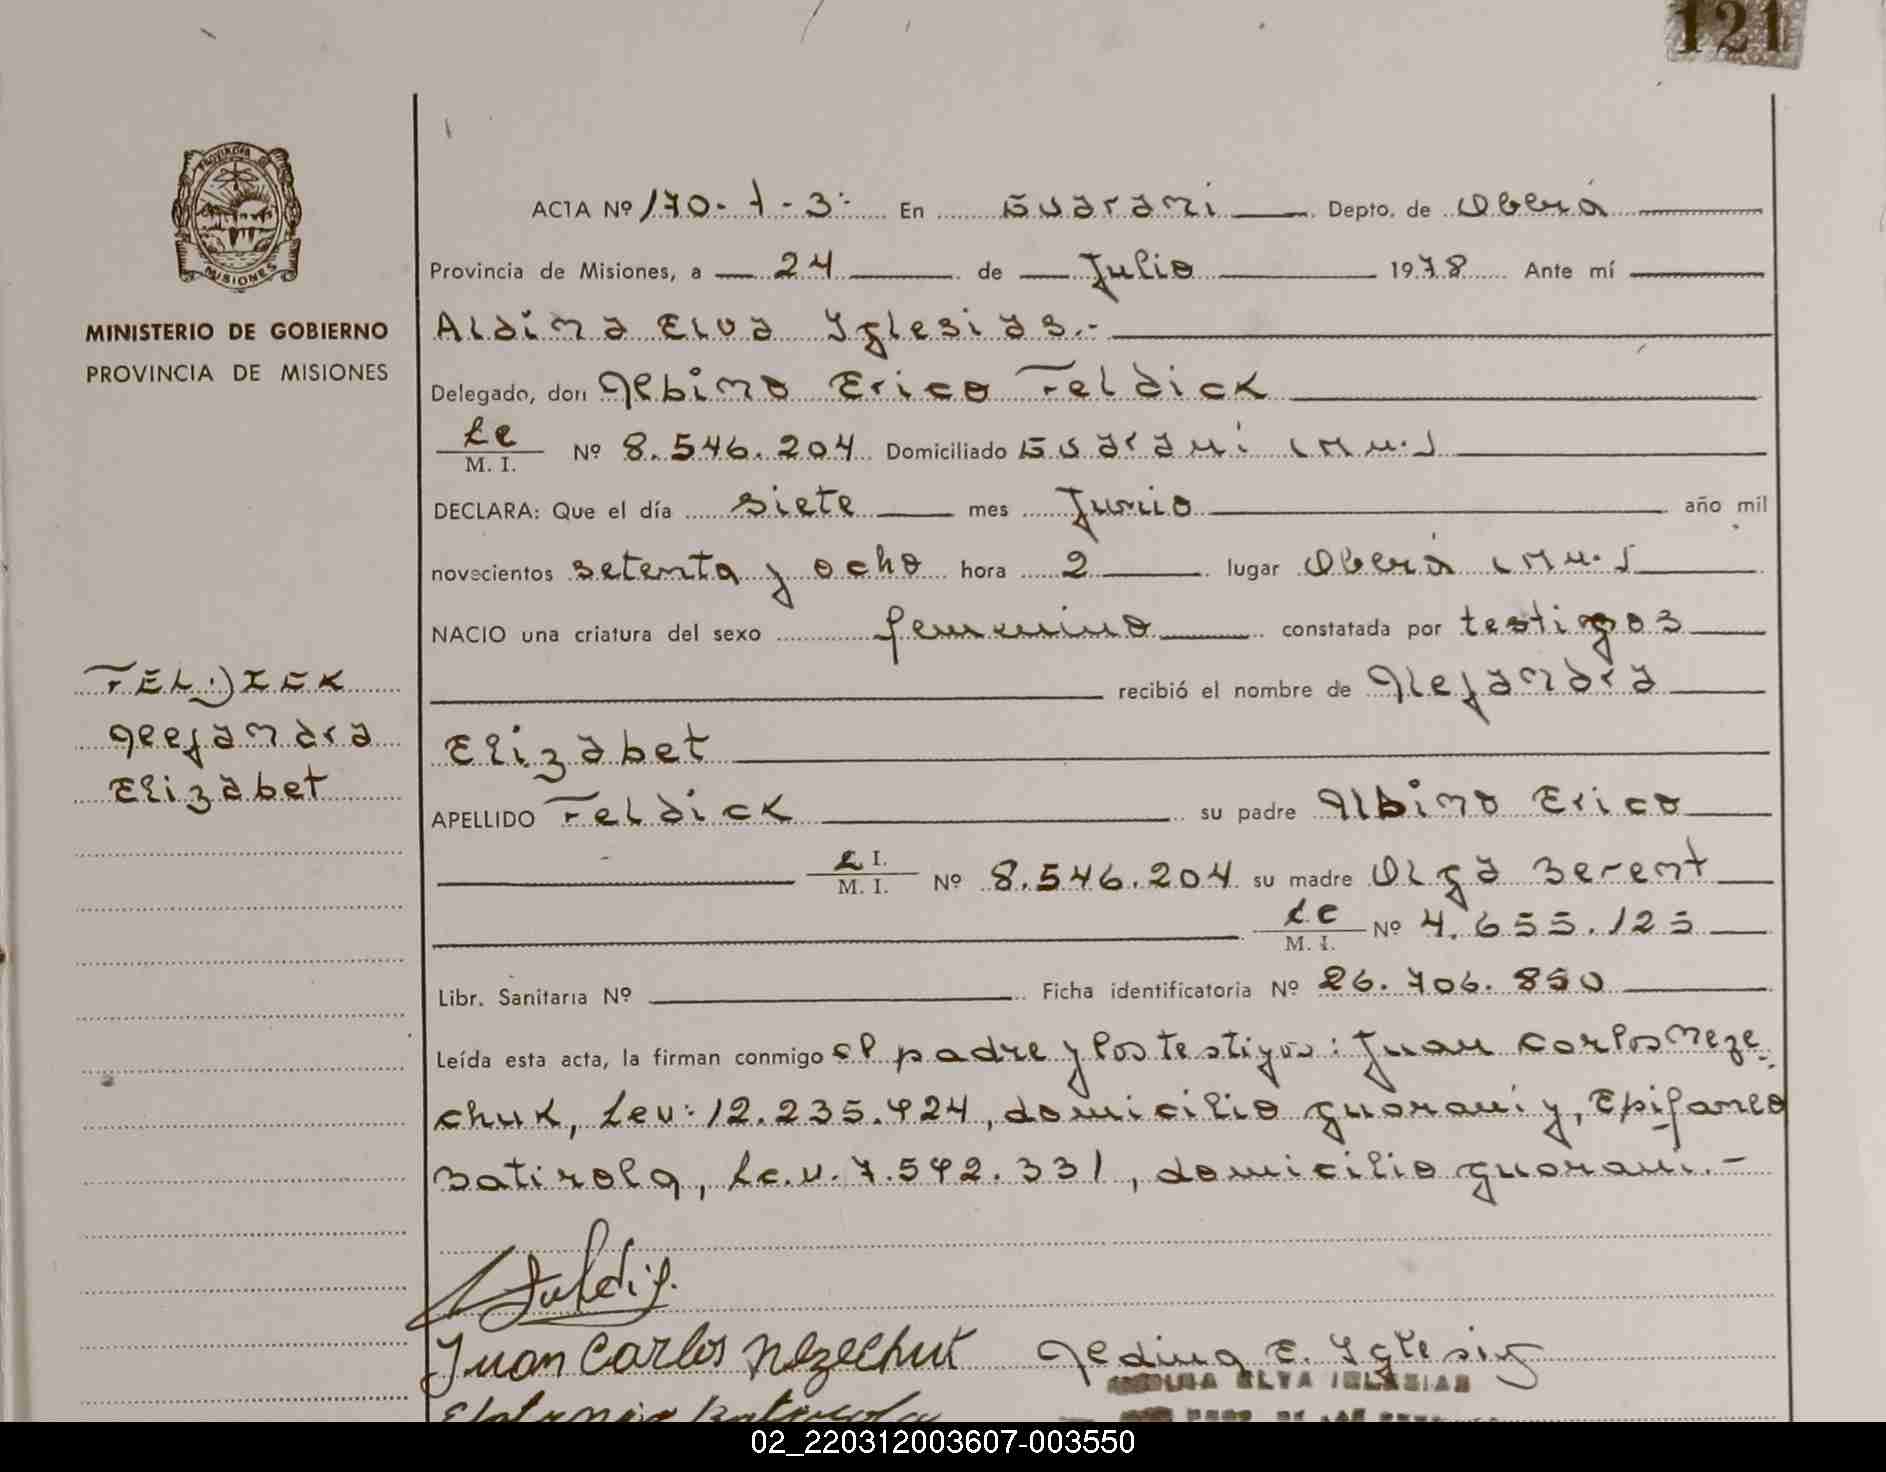 121
PROVINCIA DE
MISIONES
MINISTERIO DE GOBIERNO
PROVINCIA DE MISIONES
FELDICK
Alejandra
Elizabet
ACTA Nº 170-1-3: En Guarani Depto. de Oberá
Provincia de Misiones, a 24 de Julio 1978 Ante mí
Aldina Elva Yglesias.-
Delegado, don Albino Erico Feldick
Le M. I. Nº 8.546.204 Domiciliado Guarani
DECLARA: Que el día siete mes Junio año mil
novecientos setenta y ocho hora 2 lugar Oberá
NACIO una criatura del sexo femenino constatada por testigos
recibió el nombre de Alejandra
Elizabet
APELLIDO Feldick su padre Albino Erico
M. I. Nº 8.546.204 su madre Olga Berent
Lc M. I. Nº 4.655.125
Libr. Sanitaria Nº Ficha identificatoria Nº 26.706.850
Leída esta acta, la firman conmigo el padre y los testigos: Juan Carlos Neze-
chuk, Leu: 12.235.424, domicilio guarani y, Epifaneo
Batirola, Le.u. 7.542.331, domicilio guarani.-
Juan Carlos Nezechuk Aldina E. Yglesias
ELVA IGLESIAS
02_220312003607-003550